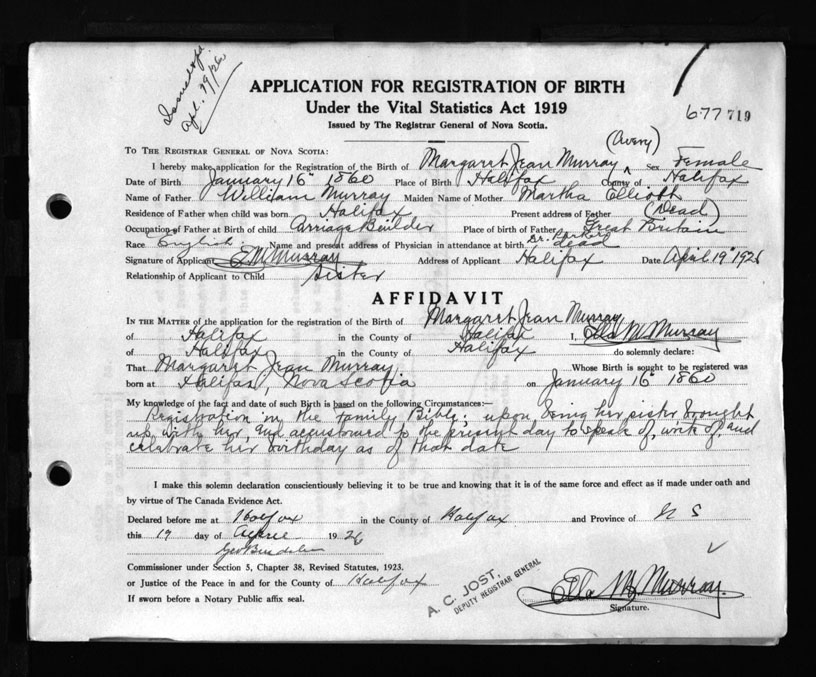 Apl. 29/26
APPLICATION FOR REGISTRATION OF BIRTH
Under the Vital Statistics Act 1919
Issued by The Registrar General of Nova Scotia.
677 719
TO THE REGISTRAR GENERAL OF NOVA SCOTIA:
(Avery)
I hereby make application for the Registration of the Birth of Margaret Jean Murray ^ Sex Female
Date of Birth January 16" 1860 Place of Birth Halifax County of Halifax
Name of Father William Murray Maiden Name of Mother Martha Elliott
Residence of Father when child was born Halifax Present address of Father (Dead)
Occupation of Father at Birth of child Carriage Builder Place of birth of Father Great Britain
Race English Name and present address of Physician in attendance at birth Dr. Parker dead
Signature of Applicant E M Murray Address of Applicant Halifax Date April 19" 1926
Relationship of Applicant to Child Sister
AFFIDAVIT
IN THE MATTER of the application for the registration of the Birth of Margaret Jean Murray
of Halifax in the County of Halifax I, Ella M. Murray
of Halifax in the County of Halifax do solemnly declare:
That Margaret Jean Murray Whose Birth is sought to be registered was
born at Halifax, Nova Scotia on January 16" 1860
My knowledge of the fact and date of such Birth is based on the following Circumstances:—
Registration in the Family Bible; upon being her sister brought
up with her, and accustomed to the present day to speak of, write of, and
celebrate her birthday as of that date
I make this solemn declaration conscientiously believing it to be true and knowing that it is of the same force and effect as if made under oath and
by virtue of The Canada Evidence Act.
Declared before me at Halifax in the County of Halifax and Province of N S
this 19 day of April 1926
Commissioner under Section 5, Chapter 38, Revised Statutes, 1923.
or Justice of the Peace in and for the County of Halifax
If sworn before a Notary Public affix seal.
A. C. JOST,
DEPUTY REGISTRAR GENERAL
Ella M. Murray.
Signature.